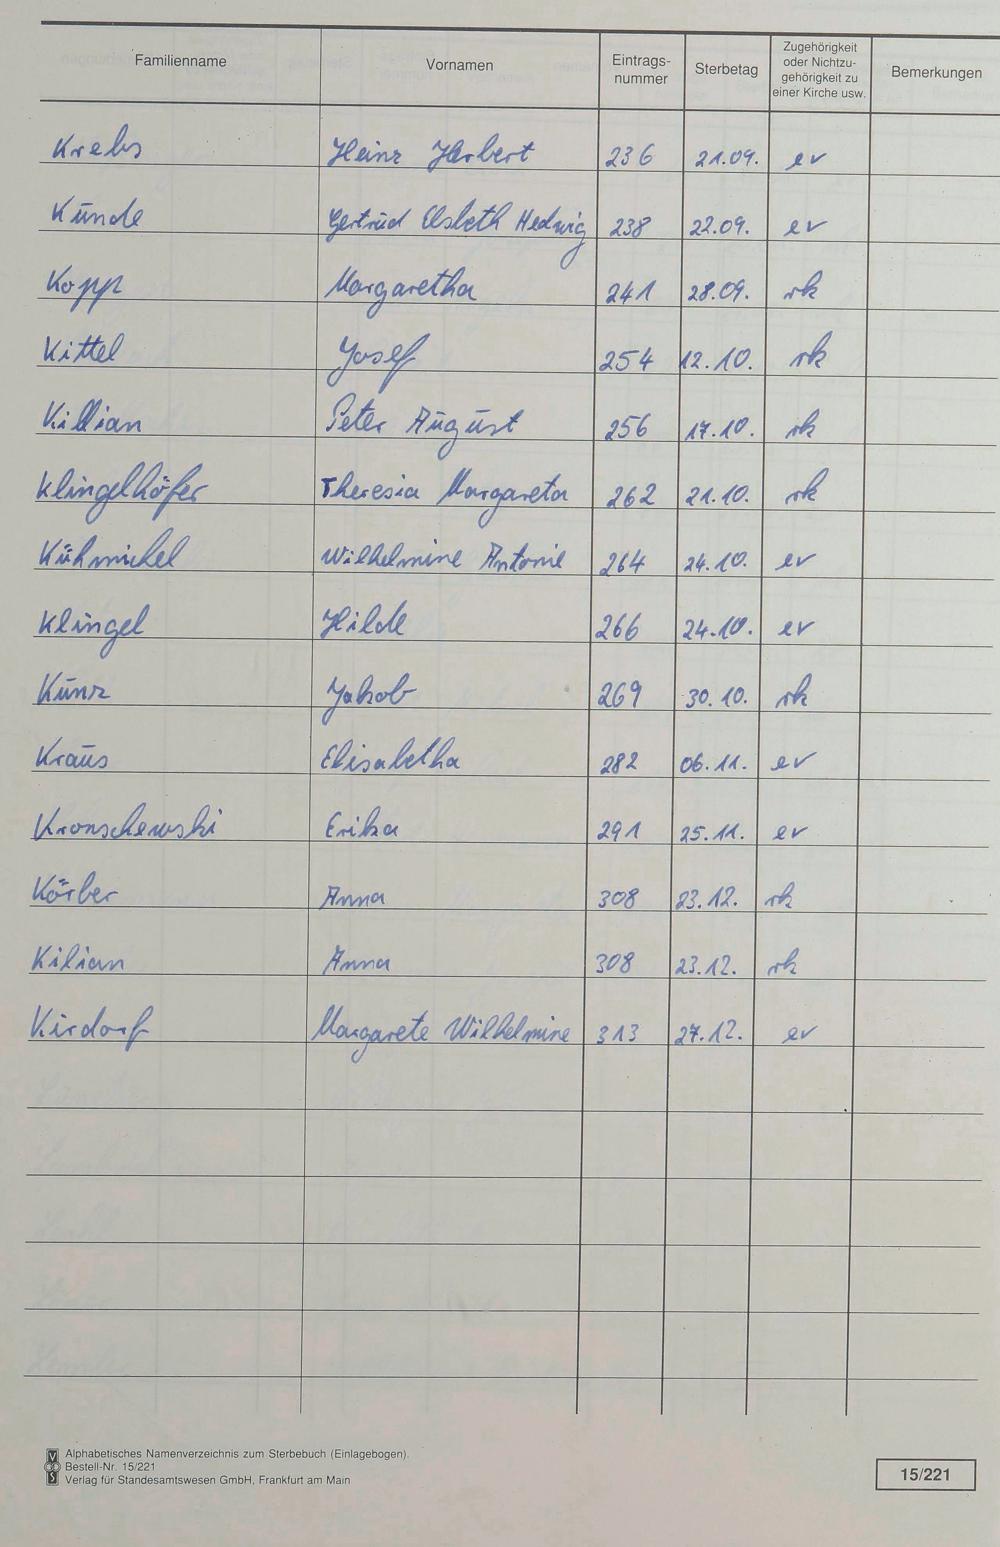 Familienname Vornamen Eintrags-nummer Sterbetag Zugehörigkeit oder Nichtzu-gehörigkeit zu einer Kirche usw. Bemerkungen
Krebs Heinz Herbert 236 21.09. ev
Kunde Gertrud Elsbeth Hedwig 238 22.09. ev
Kopp Margaretha 241 28.09. rk
Kittel Josef 254 12.10. rk
Killian Peter August 256 17.10. rk
Klingelhöfer Theresia Margareta 262 21.10. rk
Kühmichel Wilhelmine Antonie 264 24.10. ev
Klingel Hilde 266 24.10. ev
Kunz Jakob 269 30.10. rk
Kraus Elisabetha 282 06.11. ev
Kronschewski Erika 291 25.11. ev
Körber Anna 308 23.12. rk
Kilian Anna 308 23.12. rk
Kirdorf Margarete Wilhelmine 313 27.12. ev
Alphabetisches Namenverzeichnis zum Sterbebuch (Einlagebogen).
Bestell-Nr. 15/221
Verlag für Standesamtswesen GmbH, Frankfurt am Main
15/221